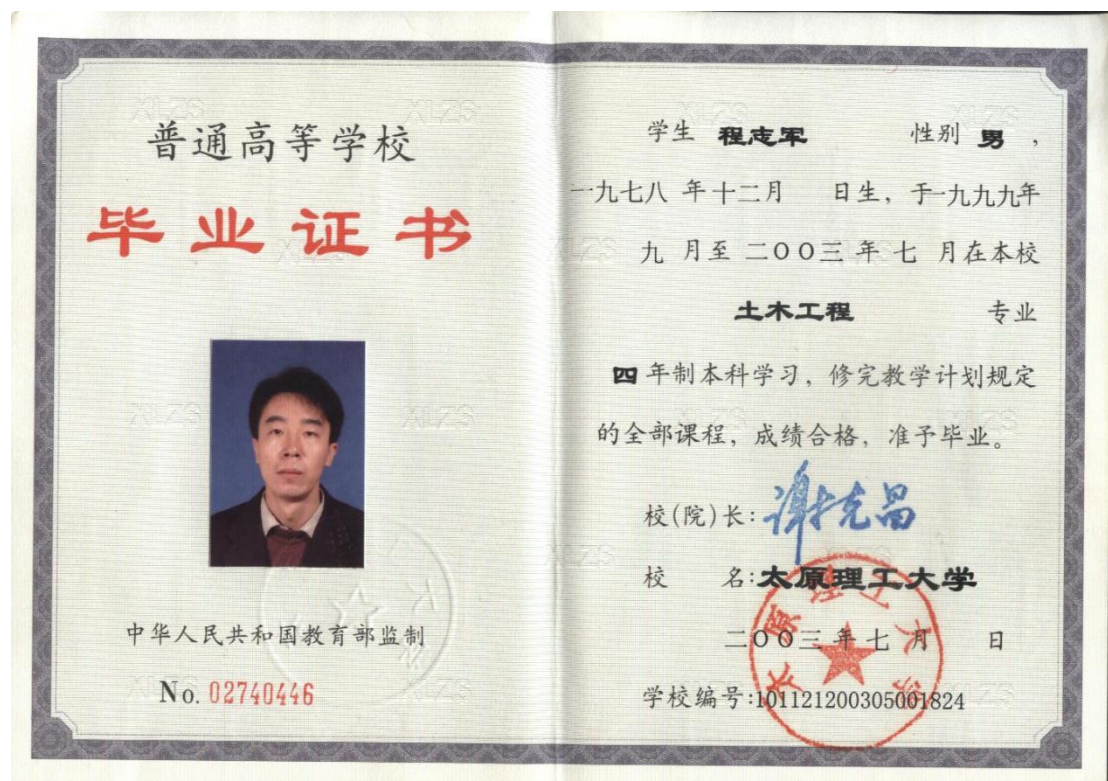 普通高等学校
毕业证书
中华人民共和国教育部监制
No. 02740446
学生 程志军 性别 男,
一九七八 年十二月 日生, 于一九九九年
九 月至 二OO三 年 七 月在本校
土木工程 专业
四 年制本科学习, 修完教学计划规定
的全部课程, 成绩合格, 准予毕业。
校(院)长: 谢克昌
校 名: 太原理工大学
太原理工大学
二OO三 年 七 月 日
学校编号:101121200305001824
XLZS